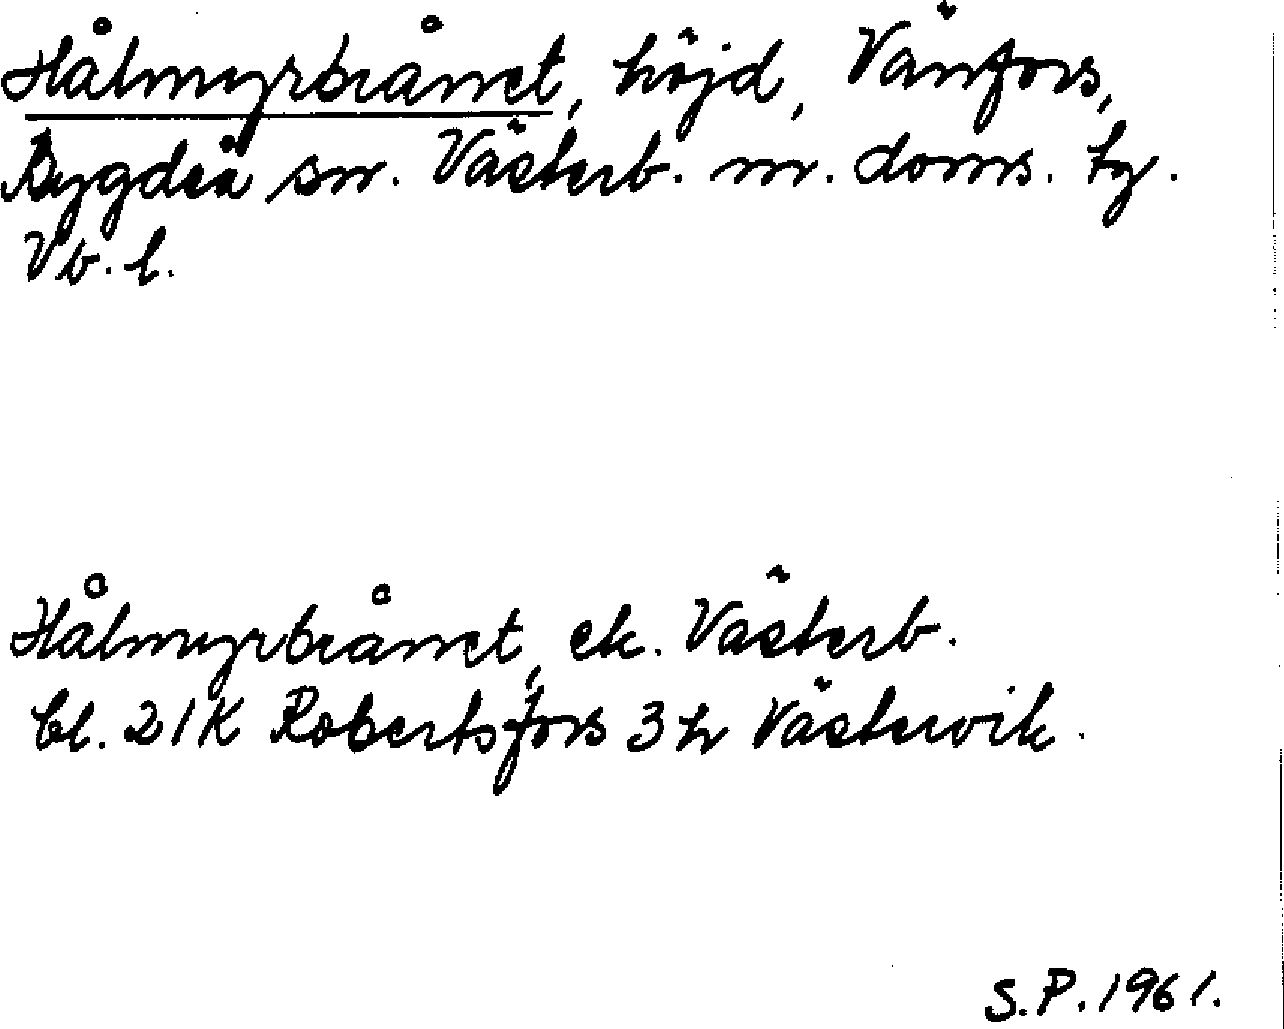 Hålmyrbrånet, höjd, Vänfors,
Bygdeå sn. Västerb. m. doms. tg.
Vb. l.
Hålmyrbrånet, ek. Västerb.
bl. 21K Robertsfors 3 h Västervik.
S.P. 1961.